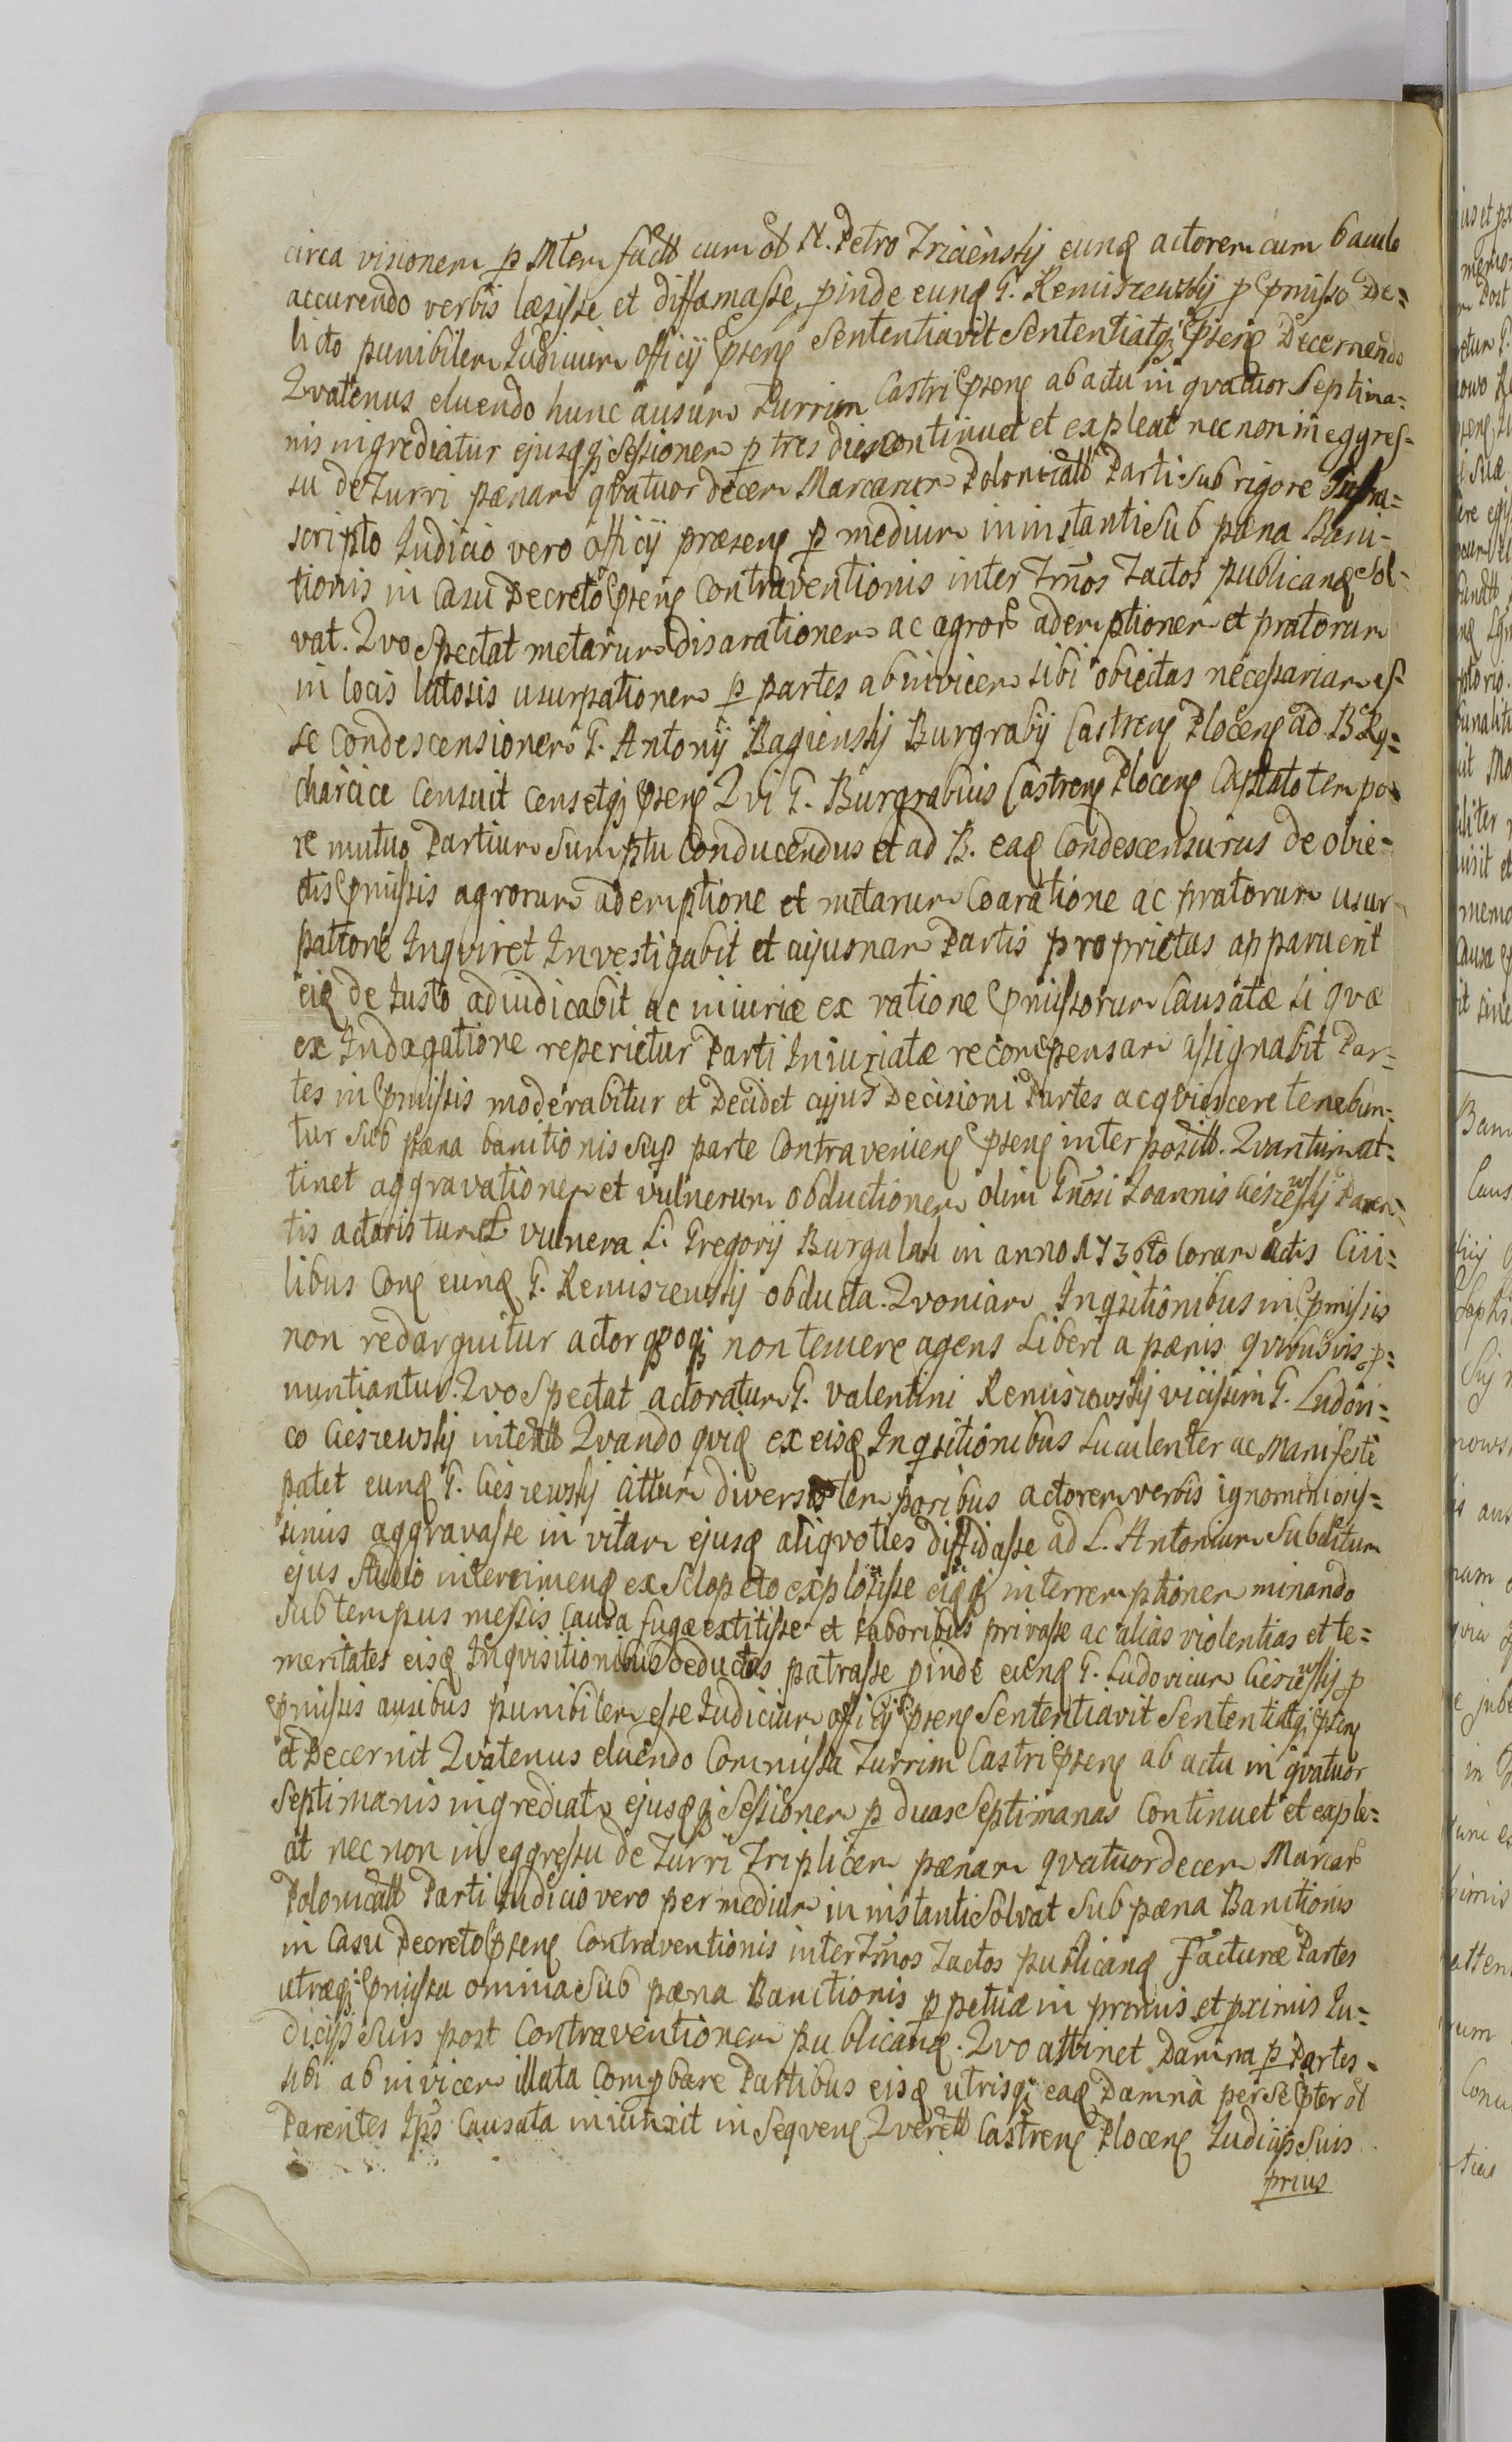 circa visionem p Mtem factt cum ol N. Petro Trzciensky eunq actorem cum baculo
accurendo verbis læsisse et diffamasse, pinde eunq G. Remiszewsky p pmisso De=
licto punibilem Judicium officij pseng Sententiavit Sententiatqj pseng Decernendo
Qvatenus eluendo hunc ausum Turrim Castri pseng ab actu in qvatuor Septima=
nis ingrediatur ejusqqj Sessionem p tres dies continuet et expleat nec non in eggres=
su de Turri pænam qvatuordecem Marcarum Polonicatt Parti sub rigore Infra=
scripto Judicio vero officij præseng p medium in instanti Sub pæna Bani=
tionis in Casu Decreto pseng Contraventionis inter Trnos Tactos publicanq Sol=
vat. Qvo Spectat metarum disarationem ac agror ademptionem et pratorum
in locis lutosis usurpationem p partes ab invicem sibi obiectas necessariam es=
se Condescensionem G. Antonij Bagiensky Burgrabij Castreng Ploceng ad B Ry=
charcice Censuit Censetqj pseng Qvi G. Burgrabius Castreng Ploceng Captato tempo=
re mutuo Partium Sumptu Conducendus et ad B. eaq Condescensurus de obie=
ctis pmissis agrorum ademptione et metarum Coaratione ac pratorum usur=
patione Inqviret Investigabit et cujusnam Partis proprietas apparuerit
eiq de Justo adiudicabit ac iniuriæ ex ratione pmissorum Causatæ si qvæ
ex Indagatione reperietur Parti Iniuriatæ recompensam assignabit Par=
tes in pmissis moderabitur et Decidet cujus Decisioni Partes acqviescere tenebun=
tur sub pæna banitionis sup parte Contravenieng pseng interpositt. Qvantum at=
tinet aggravationem et vulnerum obductionem olim Gnosi Joannis Cieszewsky Paren=
tis actoris tum et vulnera L. Gregorij Burgalah in anno 1736to Coram actis Civi=
libus Cong eunq G. Remiszewsky obducta. Qvoniam Inqsitionibus in pmissis
non redarguitur actor qpoqj non temere agens Liberi a pænis qvibusvis p=
nuntiantur. Qvo Spectat actoratum G. Valentini Remiszewsky vicissim G. Ludovi=
co Cieszewsky intentt Qvando qviq ex eisq Inqsitionibus Luculenter ac Manifeste
patet eunq G. Cieszewsky Cittum diversis temporibus actorem verbis ignominiosis=
simis aggravasse in vitam ejusq aliqvoties diffidasse ad L. Antonium Subditum
ejus Studio interimenq ex Sclopeto explosisse eiqqj interremptionem minando
Sub tempus messis Causa fugæ extitisse et Laboribus privasse ac alias violentias et te=
meritates eisq Inqvisitionibus deductas patrasse pinde eunq G. Ludovicum Cieszewsky p
pmissis ausibus punibilem esse Judicium officij pseng Sententiavit Sententiatqj pseng
et Decernit Qvatenus eluendo Commissa Turrim Castri pseng ab actu in qvatuor
Septimanis ingrediatr ejusqqj Sessionem p duas Septimanas Continuet et exple=
at nec non in eggressu de Turri Triplicem pænam qvatuordecem Marcar
Polonicatt Parti Judicio vero per medium in instanti Solvat Sub pæna Banitionis
in Casu Decreto pseng Contraventionis inter Trnos Tactos publicanq Facturæ Partes
utræqj pmissa omnia Sub pæna Banitionis ppetuæ in primis et pximis Ju=
dicijs suis post Contraventionem publicanq. Qvo attinet Damna p Partes
sibi ab invicem illata Compbare Partibus eisq utrisqj eaq Damna per Se pter ol
Parentes Ips Causata iniunxit in Seqveng Qverett Castreng Ploceng Judicijs Suis
prius